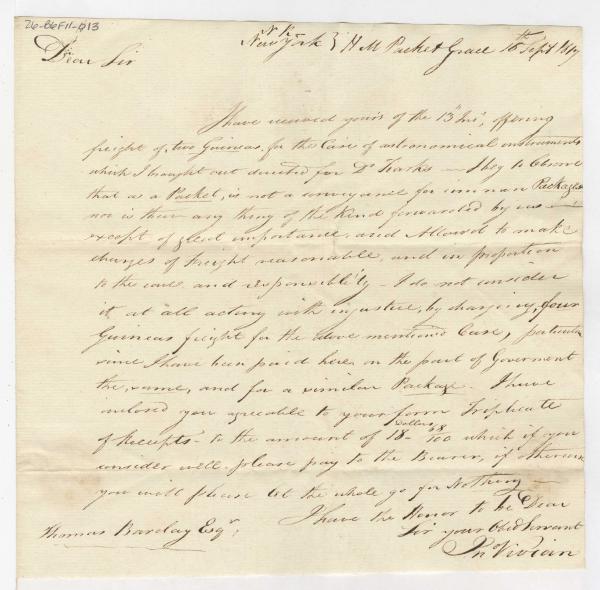 26-06F11-013
N Rr
New York } H M Packet Grace 16th Sept 1817
Dear Sir
I have received yours of the 13th Inst, offering
freight of, two Guineas, for the Case of astronomical instruments
which I brought out directed for Dr Tiarks — I beg to observe
that as a Packet, is not a conveyance for common Packages
nor is there any thing of the Kind forwarded by us —
except of great importance, and Allowed to make
charges of Freight reasonable, and in proportion
to the care, and responsiblity — I do not consider
it at all acting with injustice, by charging, four
Guineas freight for the above mentioned Case, particular
since I have been paid here, on the part of Goverment
the, same, and for a similar Package. I have
inclosed you agreeable to your form Triplicate
of Receipts — to the amount of 18 Dollars 68/100 which if you
consider well. please pay to the Bearer, if otherwise
you will please let the whole go for Nothing —
I have the Honor to be Dear
Sir your Obed Servant
Jno Vivian
Thomas Barclay Esqr,